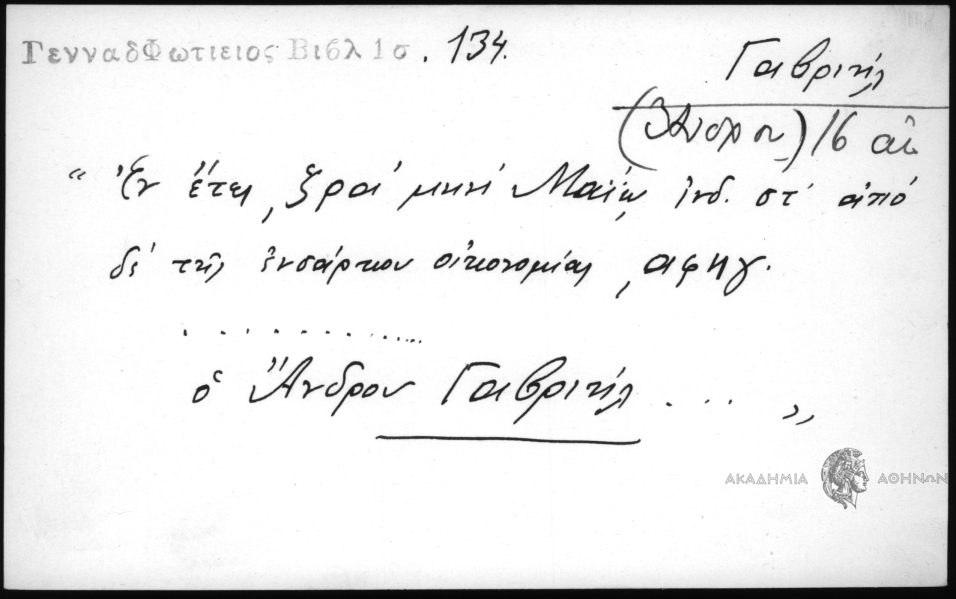 ΓενναδΦωτιειος Βιβλ 1σ. 134.
Γαβριήλ
(Ἄνδρου) 16 αἰ
“ Ἐν ἔτει ͵ζρα΄ μηνὶ Μαΐῳ ἰνδ. στ΄ ἀπὸ
δὲ τῆς ἐνσάρκου οἰκονομίας ͵αφηγ.
. . . . . . . . . . . . .
ὁ Ἄνδρου Γαβριήλ . . . . „
ΑΚΑΔΗΜΙΑ ΑΘΗΝΩΝ